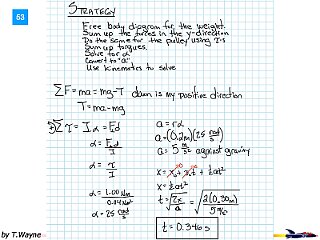 53
STRATEGY
Free body diagram for the weight.
Sum up the forces in the y-direction
Do the same for the pulley using τ's
Sum up torques.
Solve for α
Convert to "a"
Use kinematics to solve
ΣF = ma = mg - T down is my positive direction
T = ma - mg
Στ = Iα = Fd
α = Fd/I
α = τ/I
α = 1.00 Nm
α = 25 rad/s
a = rα
a = (0.2m)(25 rad/s)
a = 5 m/s² against gravity
x = x₀ + v₀t + ½at²
x = ½at²
t = √(2x/a) = √(2(0.30m)/5 m/s²)
t = 0.346 s
by T.Wayne